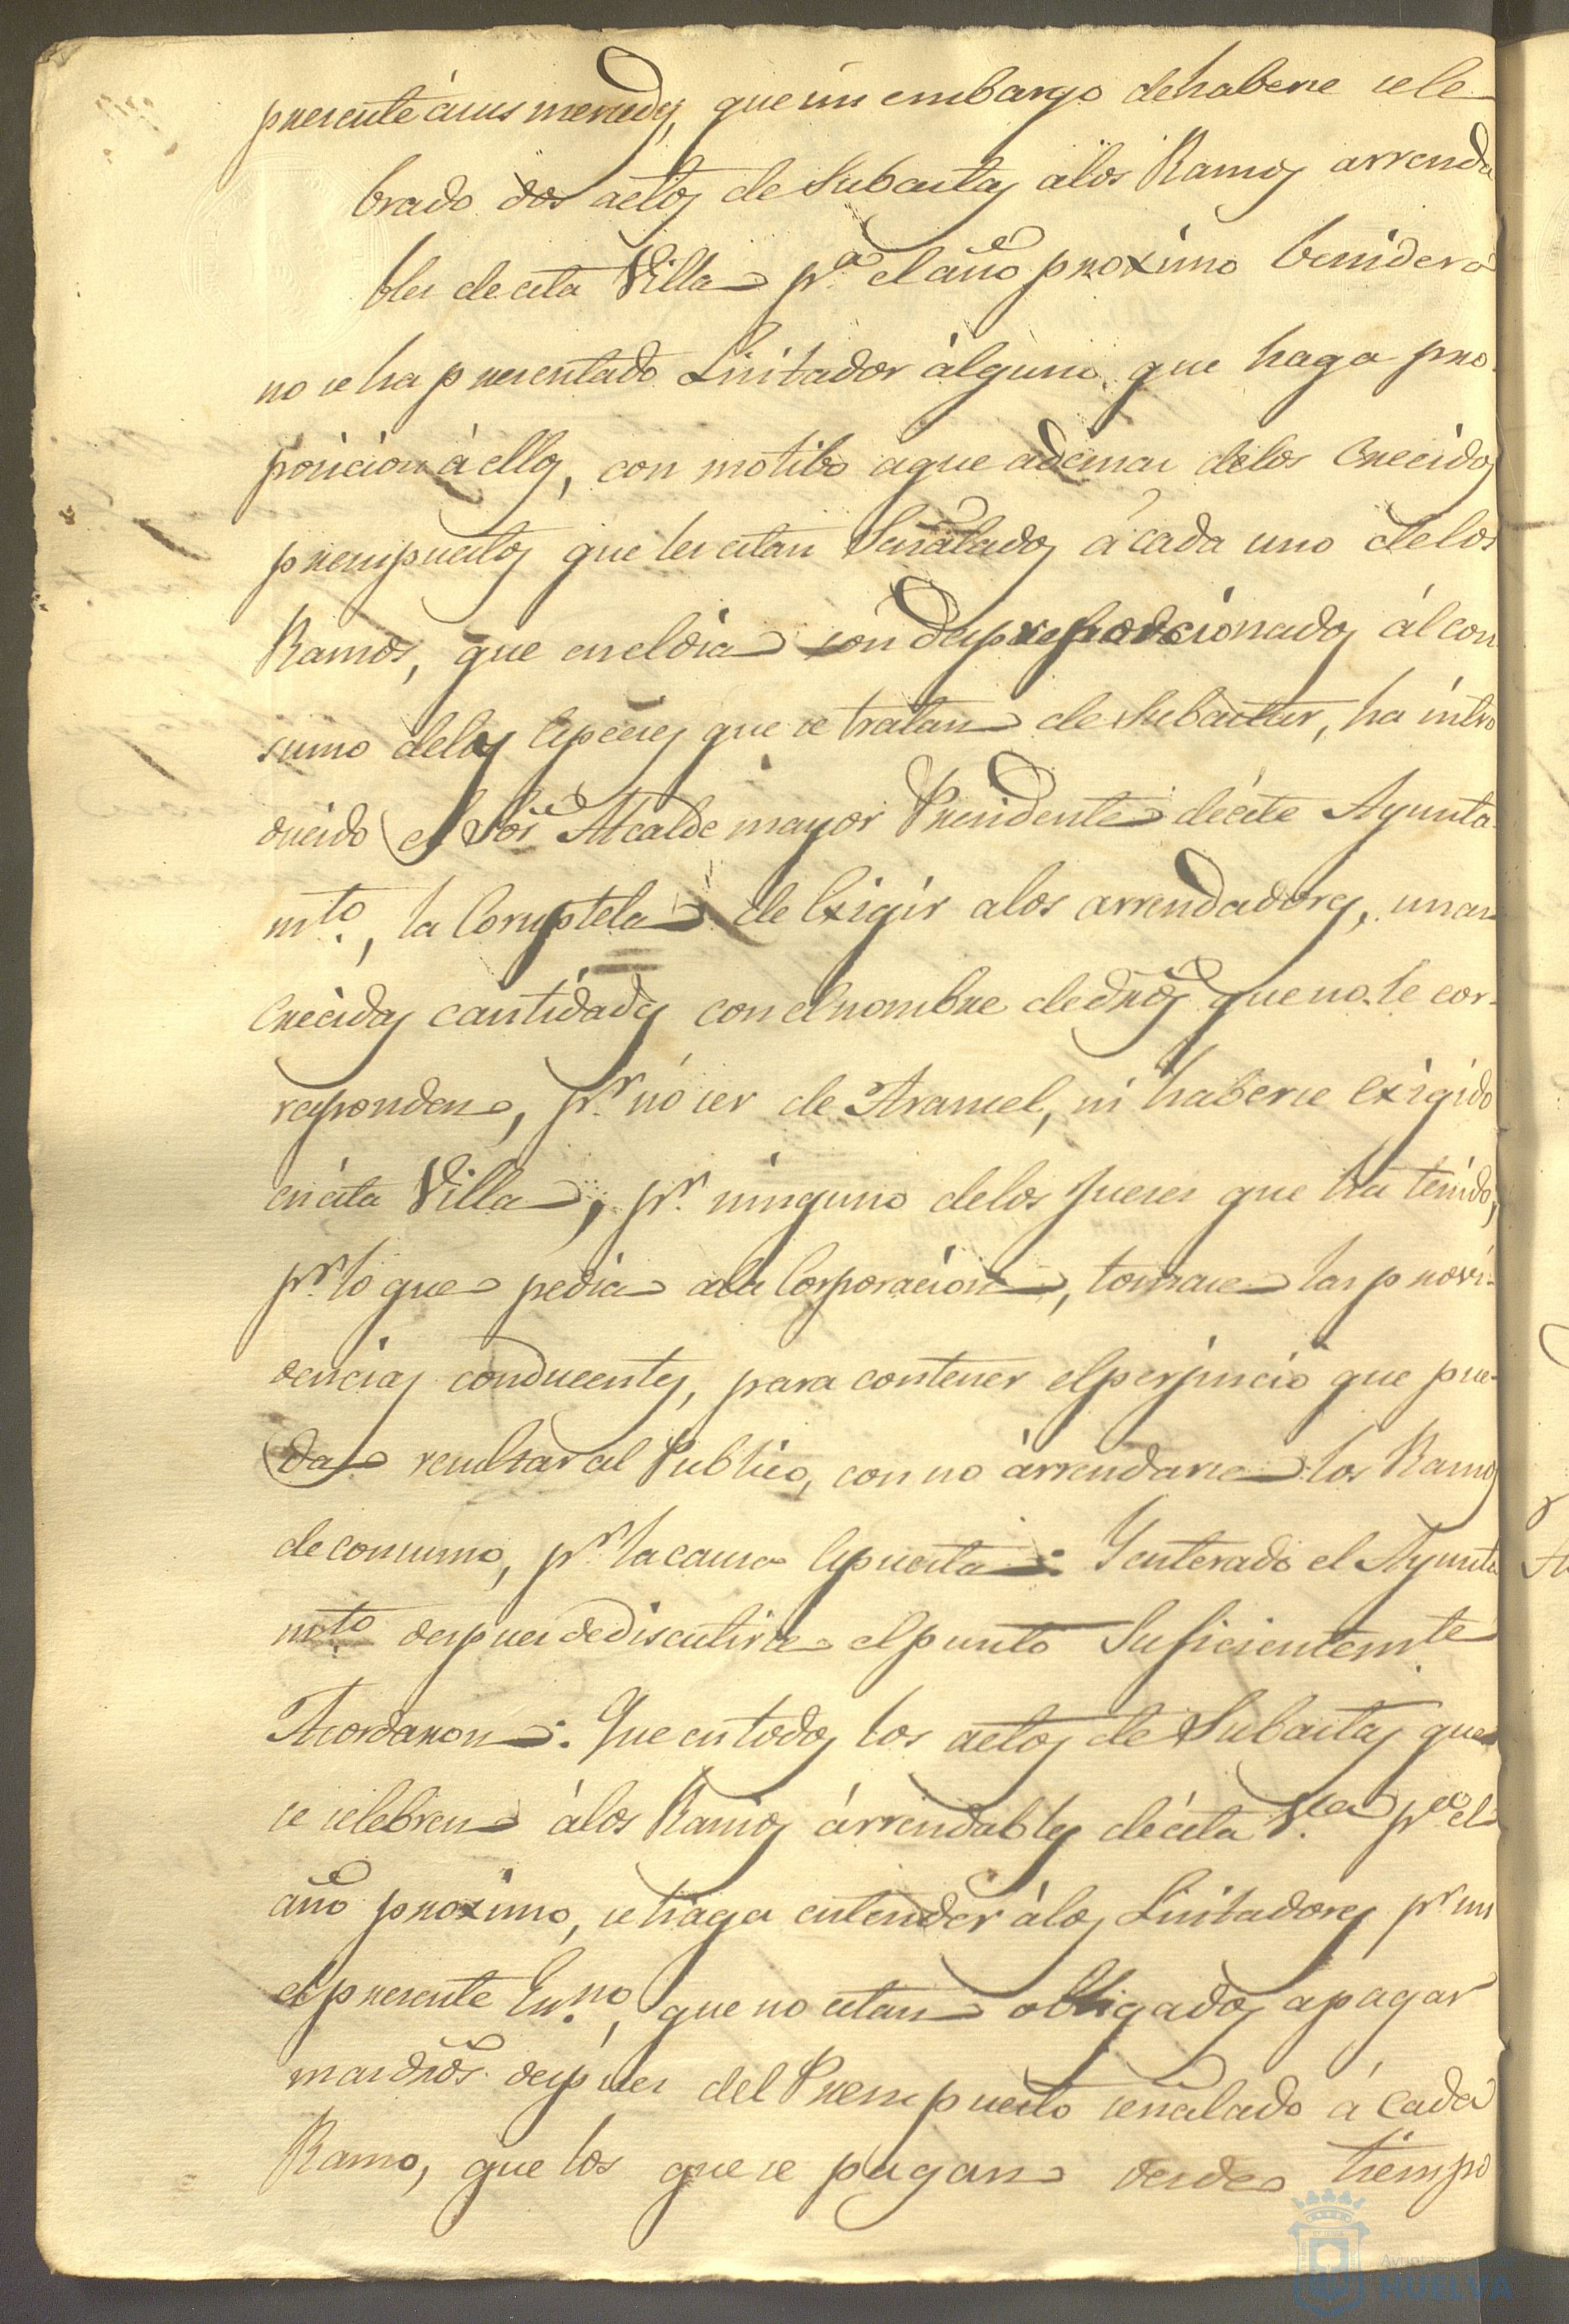 presente á sus mercedes, que sin embargo de haberse cele
brado dos actos de Subastas a los Ramos arrenda
bles de esta Villa pª. el año proximo benidero
no se ha presentado Licitador alguno que haga pro
posicion á ellos, con motibo a que ademas de los crecidos
presupuestos que les estan Señalados á cada uno de los
Ramos, que en el dia son desproporcionados al con
sumo de las Especies que se tratan de Subastar, ha intro
ducido el Sor. Alcalde mayor Presidente de este Ayunta
mto., la Corruptela de Exigir a los arrendadores, unas
crecidas cantidades con el nombre de dros. que no le cor-
responden, pr. no ser de Arancel, ni haberse exigido
en esta Villa, pr. ninguno de los Jueces que ha tenido,
pr. lo que pedia a la Corporacion, tomase las provi-
dencias conducentes, para contener el perjuicio que pue-
da resultar al Publico, con no arrendarse los Ramos
de consumo, pr. la causa Espuesta: Y enterado el Ayunta
mto. despues de discutirse el punto Suficientemte.
Acordaron: Que en todos los actos de Subastas que
se celebren á los Ramos árrendables de esta Vª. pª. el
año proximo, se haga entender á los Licitadores pr. mi
el presente Esno., que no estan obligados a pagar
mas dros. despues del Presupuesto señalado á cada
Ramo, que los que se pagan desde tiempo
HUELVA